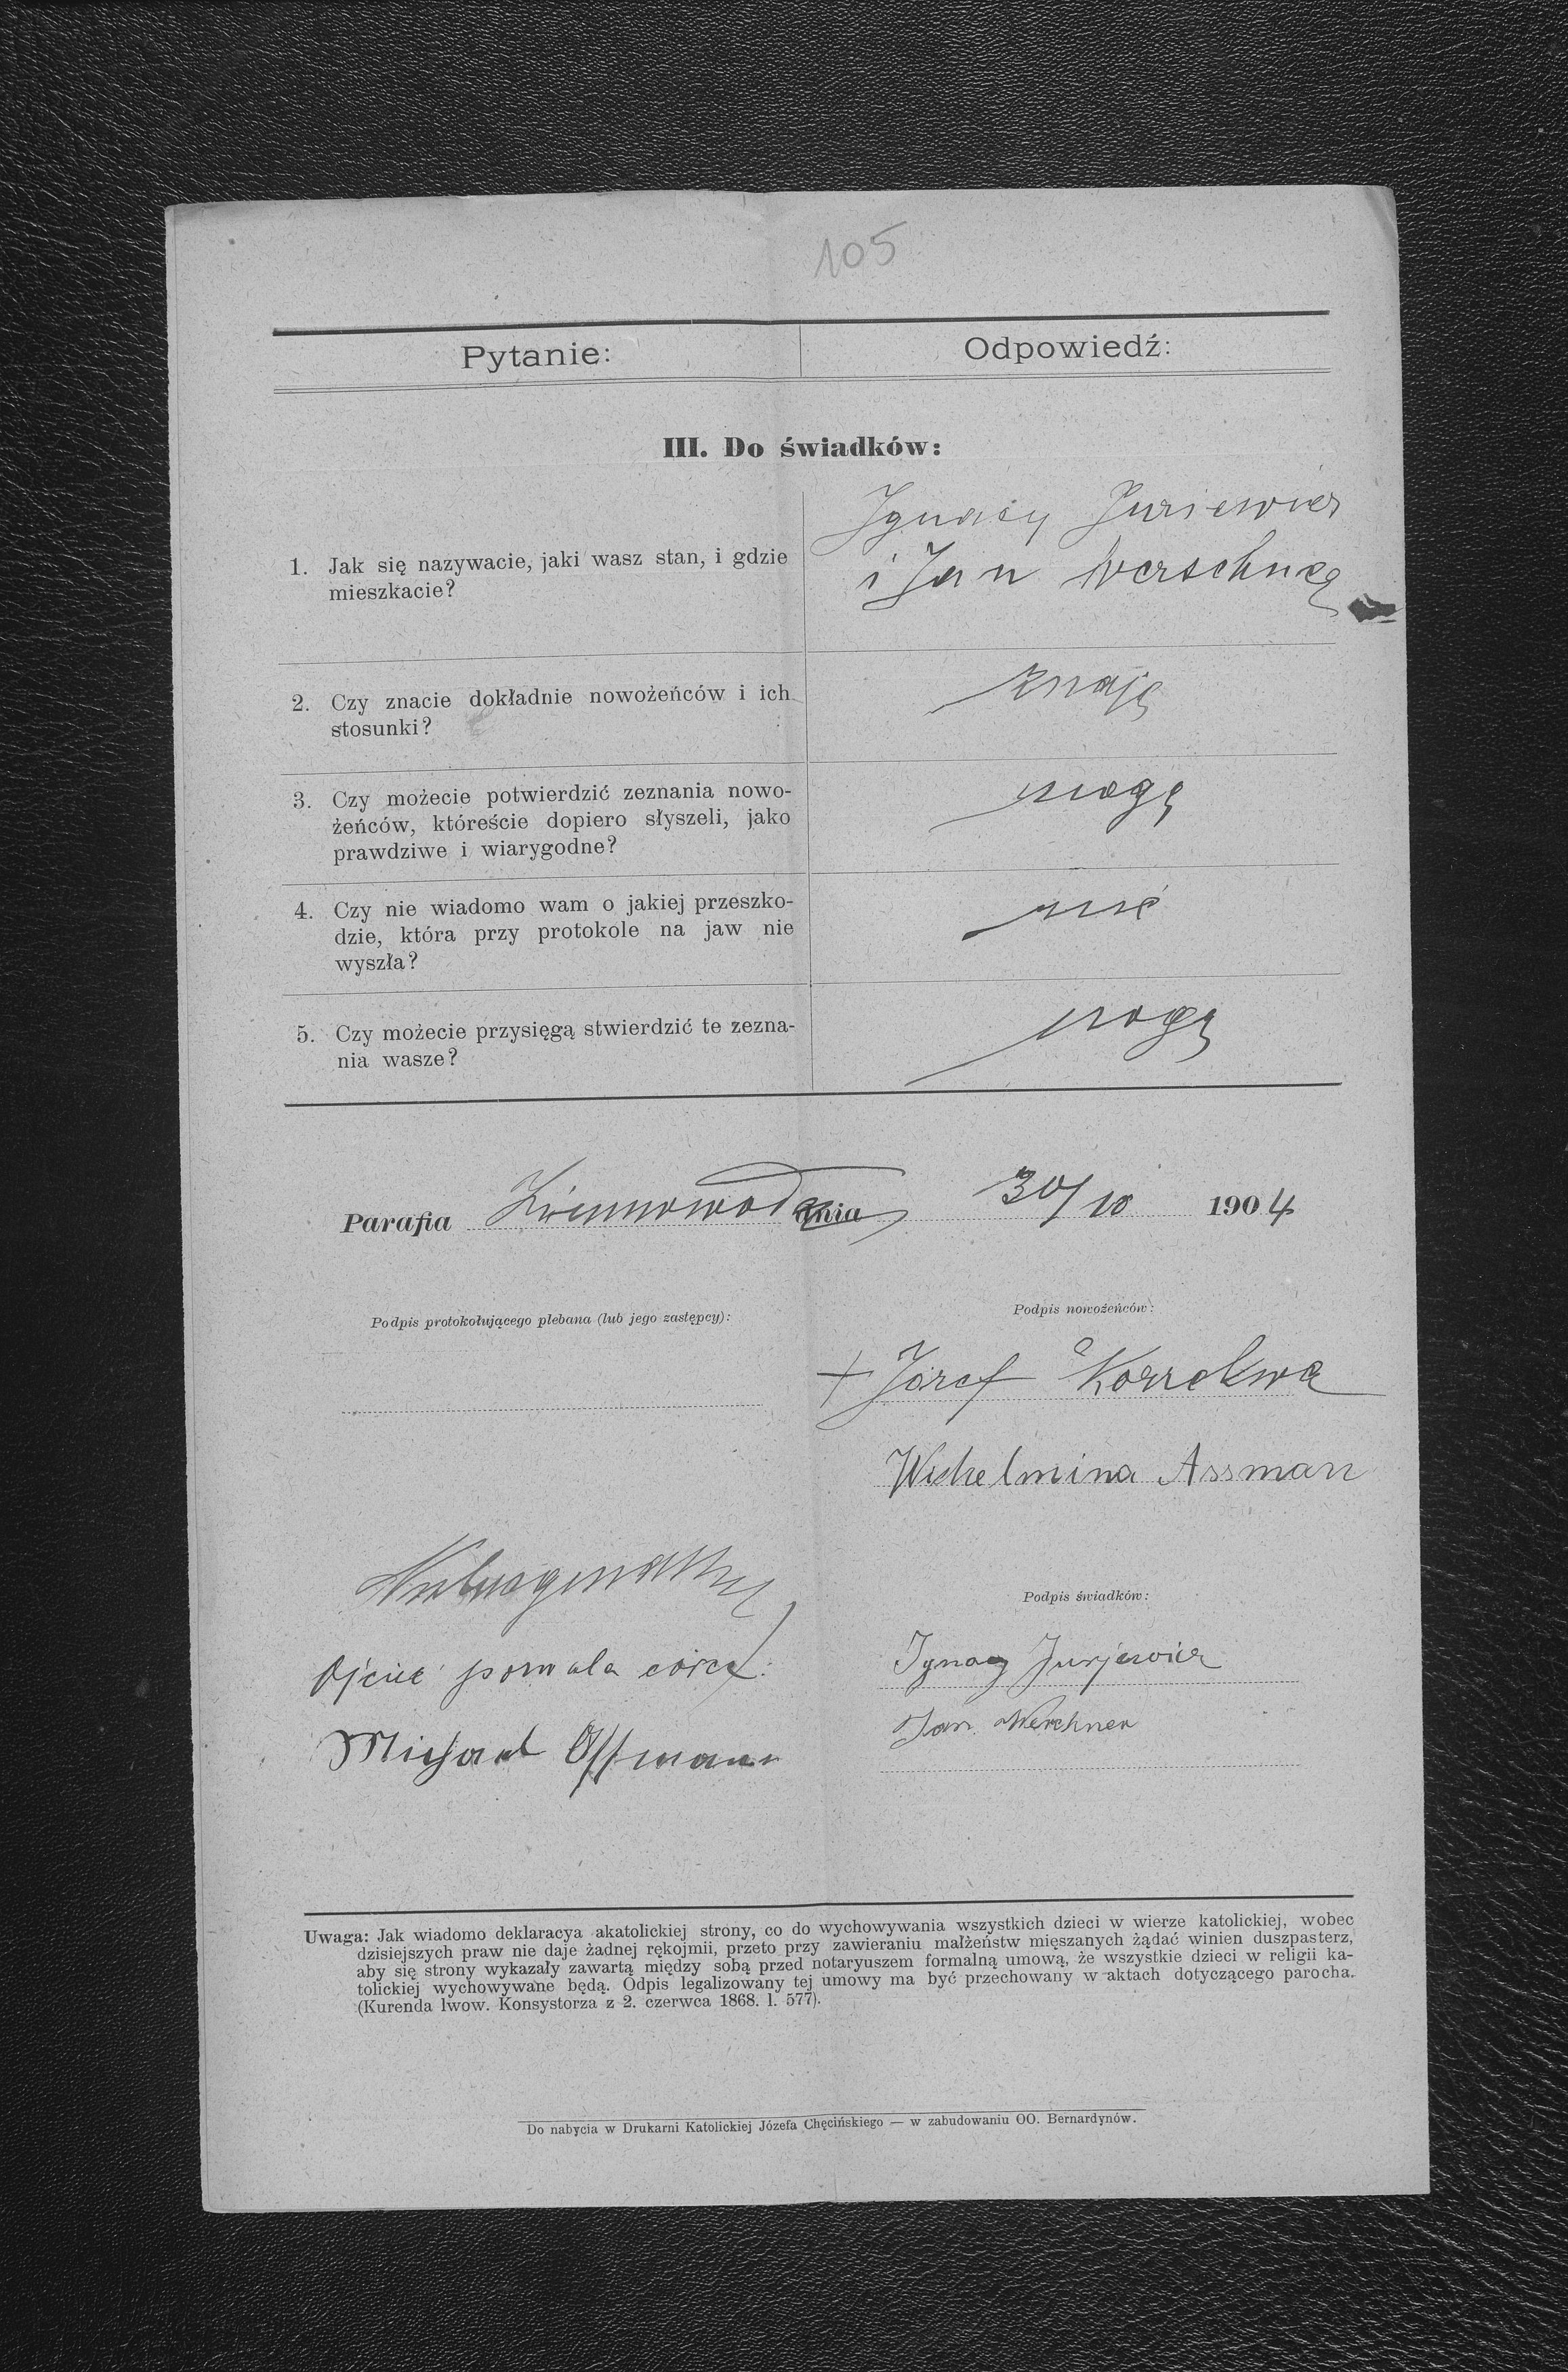 105
Pytanie:
Odpowiedź:
III. Do świadków:
1. Jak się nazywacie, jaki wasz stan, i gdzie
mieszkacie?
Ignacy Juriewicz
i Jan
2. Czy znacie dokładnie nowożeńców i ich
stosunki?
znają
3. Czy możecie potwierdzić zeznania nowo-
żeńców, któreście dopiero słyszeli, jako
prawdziwe i wiarygodne?
mogą
4. Czy nie wiadomo wam o jakiej przeszko-
dzie, która przy protokole na jaw nie
wyszła?
nie
5. Czy możecie przysięgą stwierdzić te zezna-
nia wasze?
mogą
Parafia Zimnowoda dnia 30/10 1904
Podpis protokołującego plebana (lub jego zastępcy):
Podpis nowożeńców:
+ Józef
Wichelmina Assman
Podpis świadków:
Ojciec pozwala córce:
Ignacy Jurjewicz
Jan Werchner
Michael Assmann
Uwaga: Jak wiadomo deklaracya akatolickiej strony, co do wychowywania wszystkich dzieci w wierze katolickiej, wobec
dzisiejszych praw nie daje żadnej rękojmii, przeto przy zawieraniu małżeństw mięszanych żądać winien duszpasterz,
aby się strony wykazały zawartą między sobą przed notaryuszem formalną umową, że wszystkie dzieci w religii ka-
tolickiej wychowywane będą. Odpis legalizowany tej umowy ma być przechowany w aktach dotyczącego parocha.
(Kurenda lwow. Konsystorza z 2. czerwca 1868. l. 577).
Do nabycia w Drukarni Katolickiej Józefa Chęcińskiego — w zabudowaniu OO. Bernardynów.